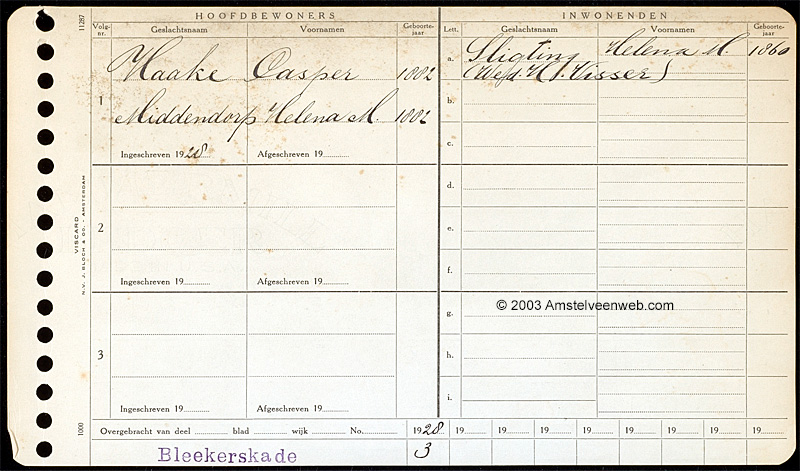 11287
HOOFDBEWONERS
Volg- nr. Geslachtsnaam Voornamen Geboorte- jaar
1
Haake Casper 1882
Middendorp Helena M. 1882
Ingeschreven 1928 Afgeschreven 19
2
Ingeschreven 19 Afgeschreven 19
3
Ingeschreven 19 Afgeschreven 19
INWONENDEN
Lett. Geslachtsnaam Voornamen Geboorte- jaar
a. Sligting Helena M. 1860
(Wed. H. Visser)
b.
c.
d.
e.
f.
© 2003 Amstelveenweb.com
g.
h.
i.
VISCARD
N.V. J. BLOCH & CO. - AMSTERDAM
1000
Overgebracht van deel blad wijk No. 1928 19 19 19 19 19 19 19 19
Bleekerskade 3